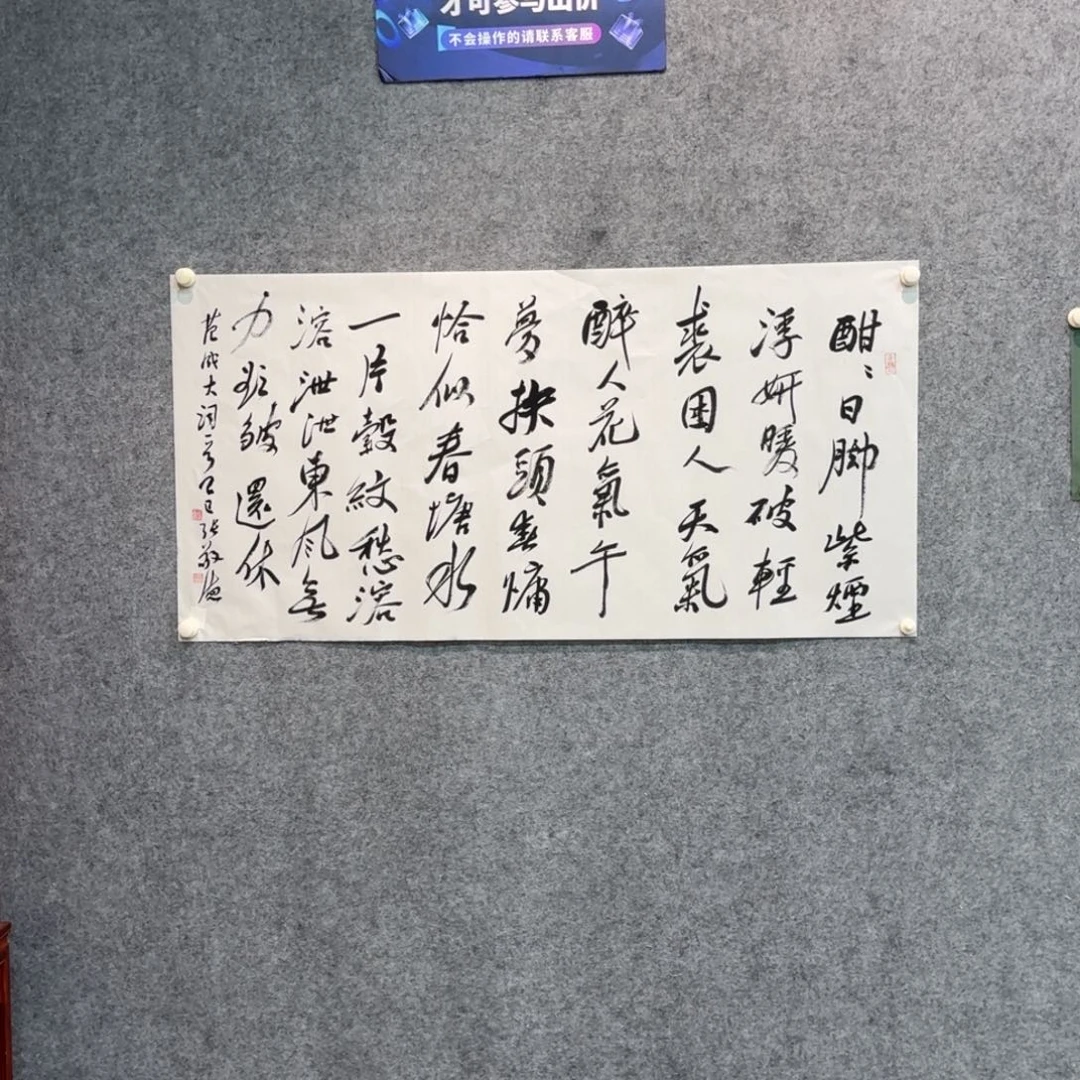 才可参与出价
不会操作的请联系客服
酣〻日脚紫煙
浮妍暖破輕
裘困人天氣
醉人花氣午
夢扶頭春慵
恰似春塘水
一片縠紋愁溶
溶泄泄東风無
力欲皱還休
范成大词一首乙巳张敬